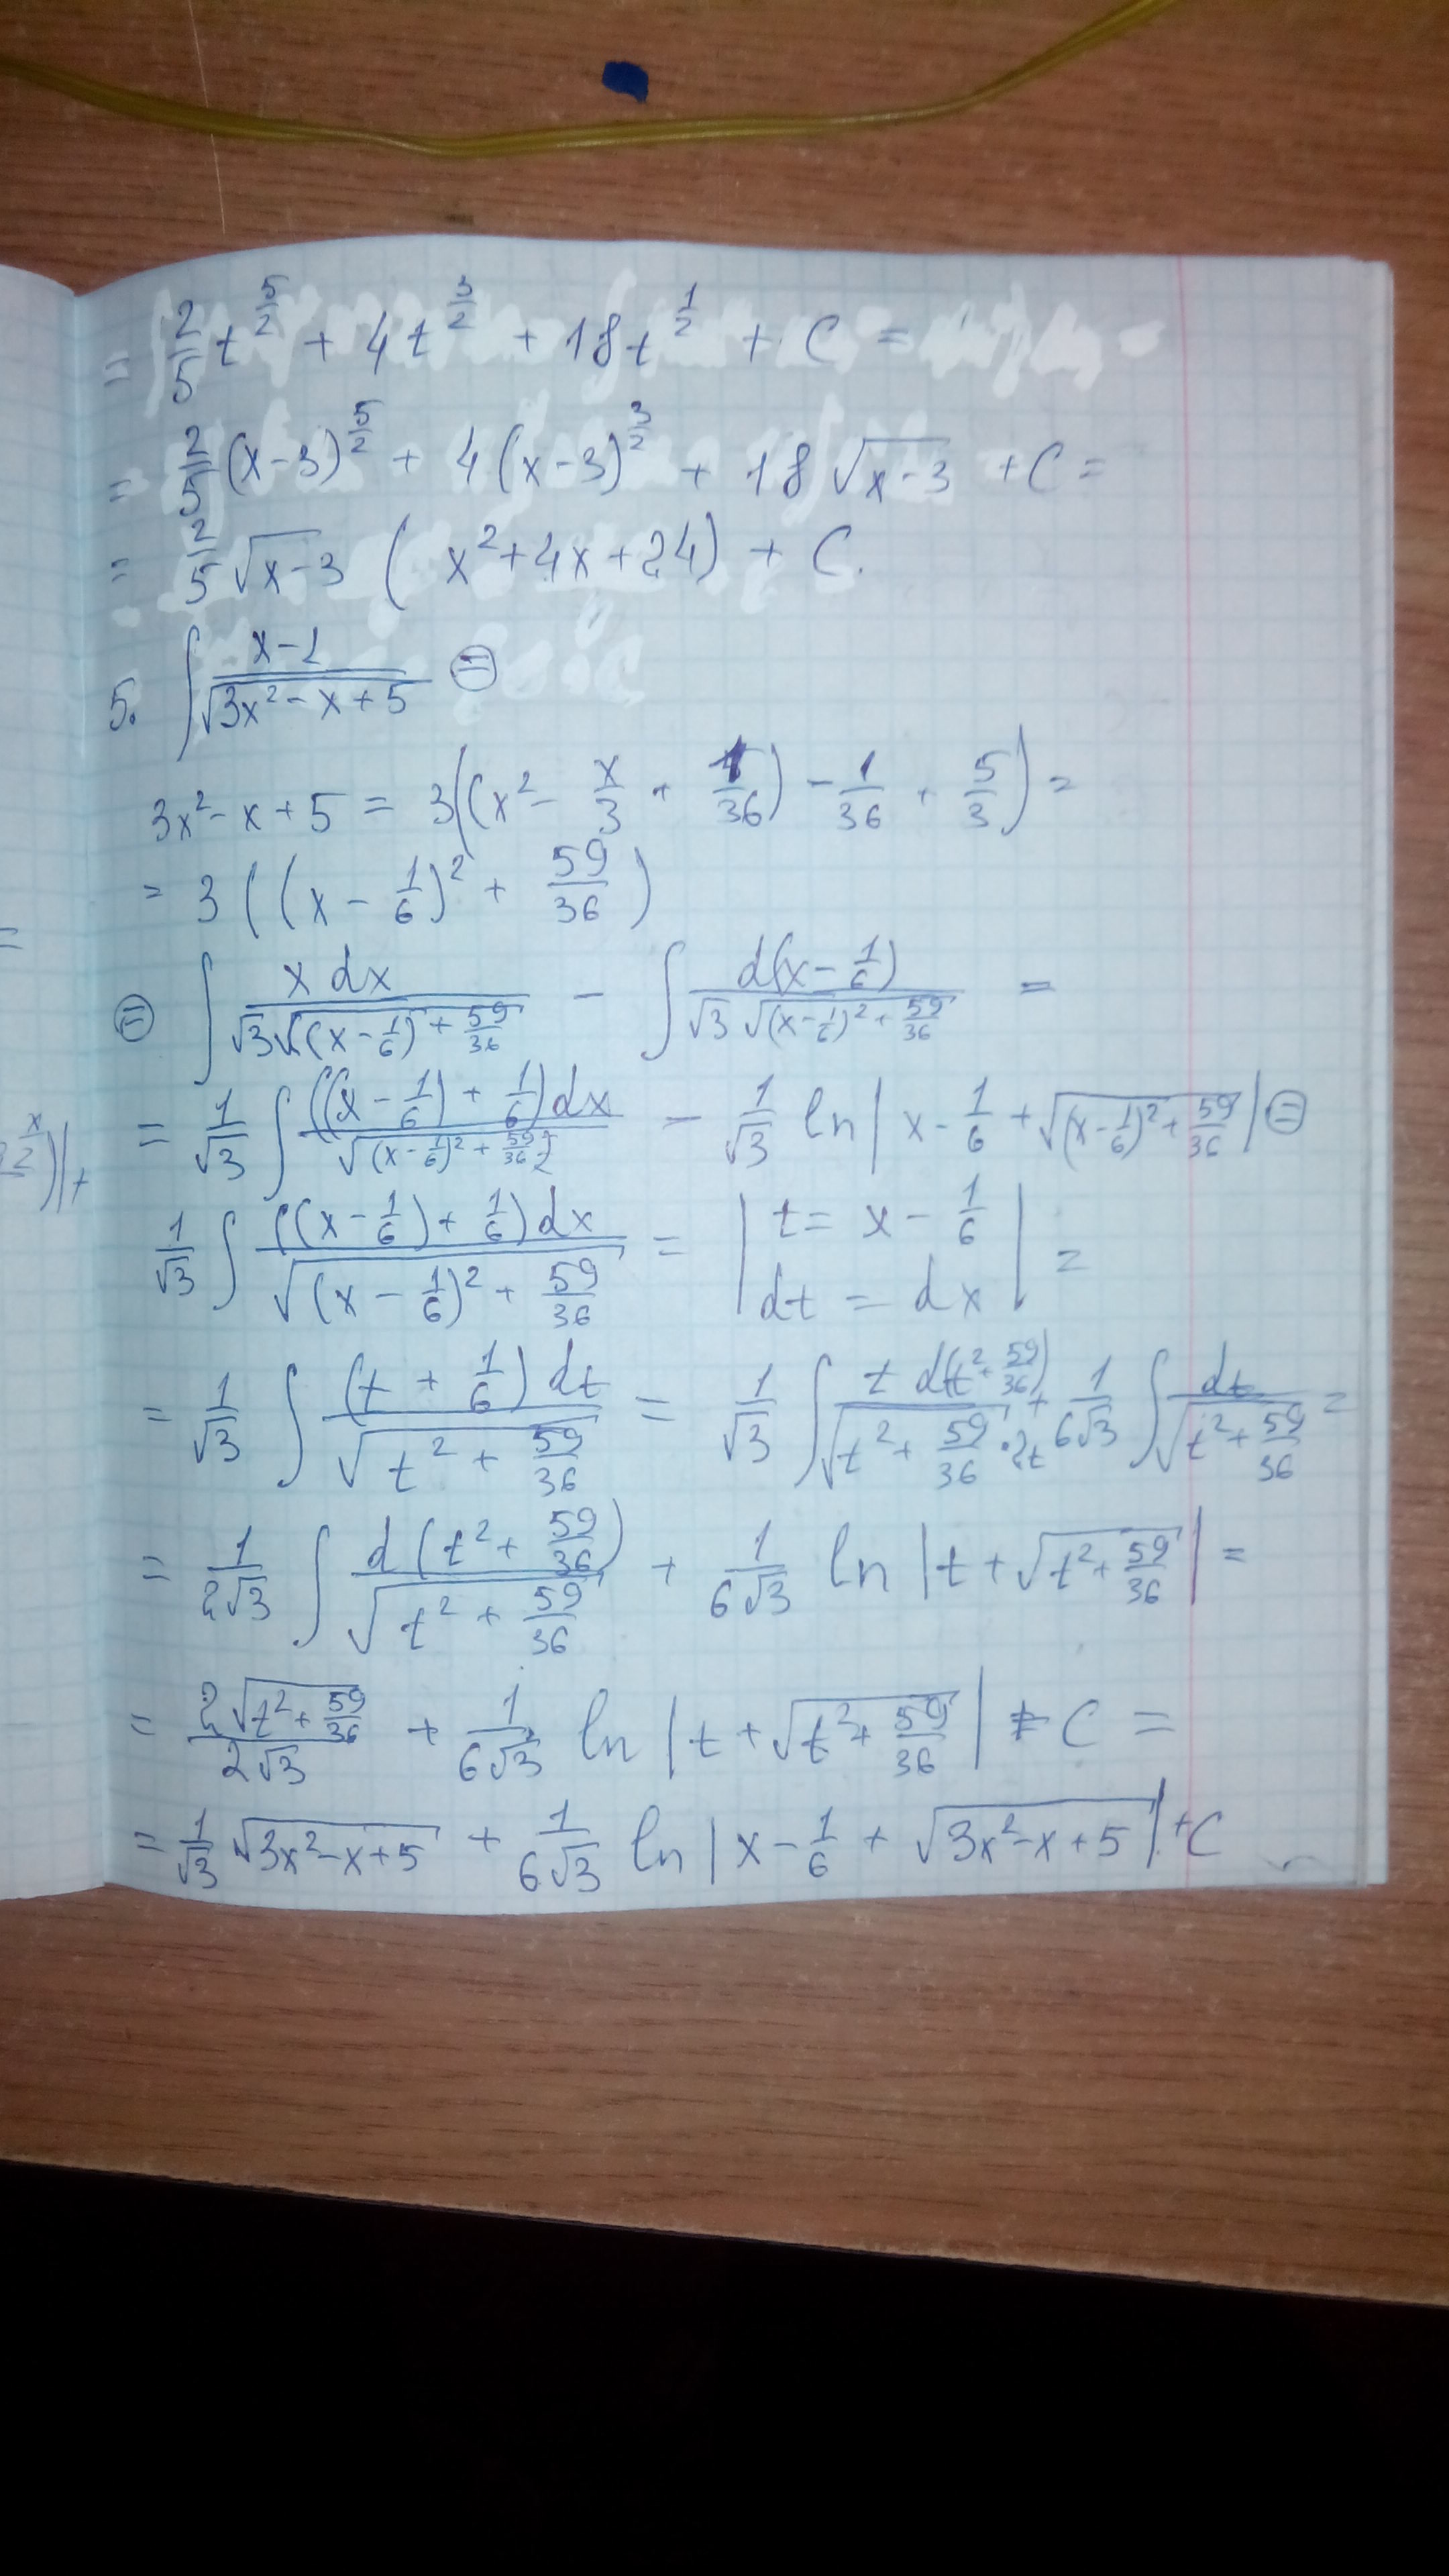 = 2/5 t^(5/2) + 4t^(3/2) + 18t^(1/2) + C =
= 2/5 (x-3)^(5/2) + 4(x-3)^(3/2) + 18√(x-3) + C =
= 2/5 √(x-3) ( x² + 4x + 24) + C.
5. ∫ (x-1)/√(3x² - x + 5) ⊜
3x² - x + 5 = 3((x² - x/3 + 1/36) - 1/36 + 5/3) =
= 3((x - 1/6)² + 59/36)
⊜ ∫ x dx/(√3 √((x - 1/6)² + 59/36)) - ∫ d(x - 1/6)/(√3 √((x - 1/6)² + 59/36)) =
= 1/√3 ∫ ((x - 1/6) + 1/6)dx/√((x - 1/6)² + 59/36) - 1/√3 ln|x - 1/6 + √((x - 1/6)² + 59/36)| ⊜
1/√3 ∫ ((x - 1/6) + 1/6)dx/√((x - 1/6)² + 59/36) = | t = x - 1/6
dt = dx | =
= 1/√3 ∫ (t + 1/6) dt/√(t² + 59/36) = 1/√3 ∫ t d(t² + 59/36)/(√(t² + 59/36) · 2t) + 1/(6√3) ∫ dt/√(t² + 59/36) =
= 1/(2√3) ∫ d(t² + 59/36)/√(t² + 59/36) + 1/(6√3) ln|t + √(t² + 59/36)| =
= 2√(t² + 59/36)/(2√3) + 1/(6√3) ln|t + √(t² + 59/36)| + C =
= 1/√3 √(3x² - x + 5) + 1/(6√3) ln|x - 1/6 + √(3x² - x + 5)| + C